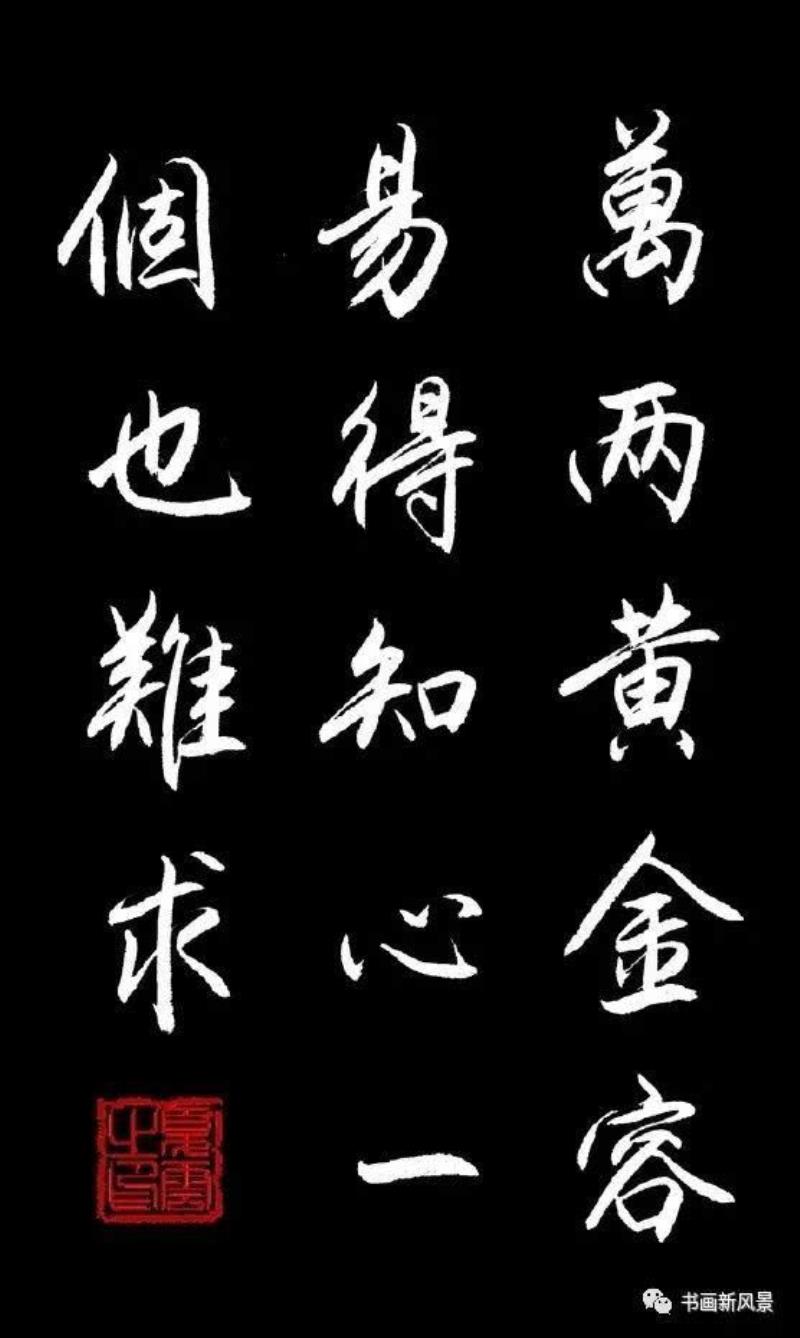 萬两黄金容
易得知心一
個也難求
书画新风景